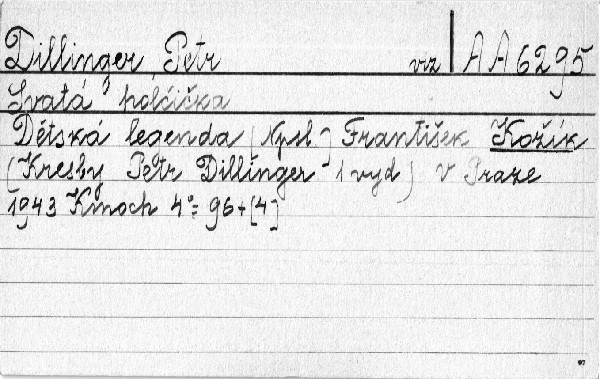 Dillinger, Petr viz AA6295
Svatá holčička
Dětská legenda (Nps. František Kožík
(Kresby Petr Dillinger - 1 vyd) V Praze
1943 Kmoch 4°= 96+[4]
97